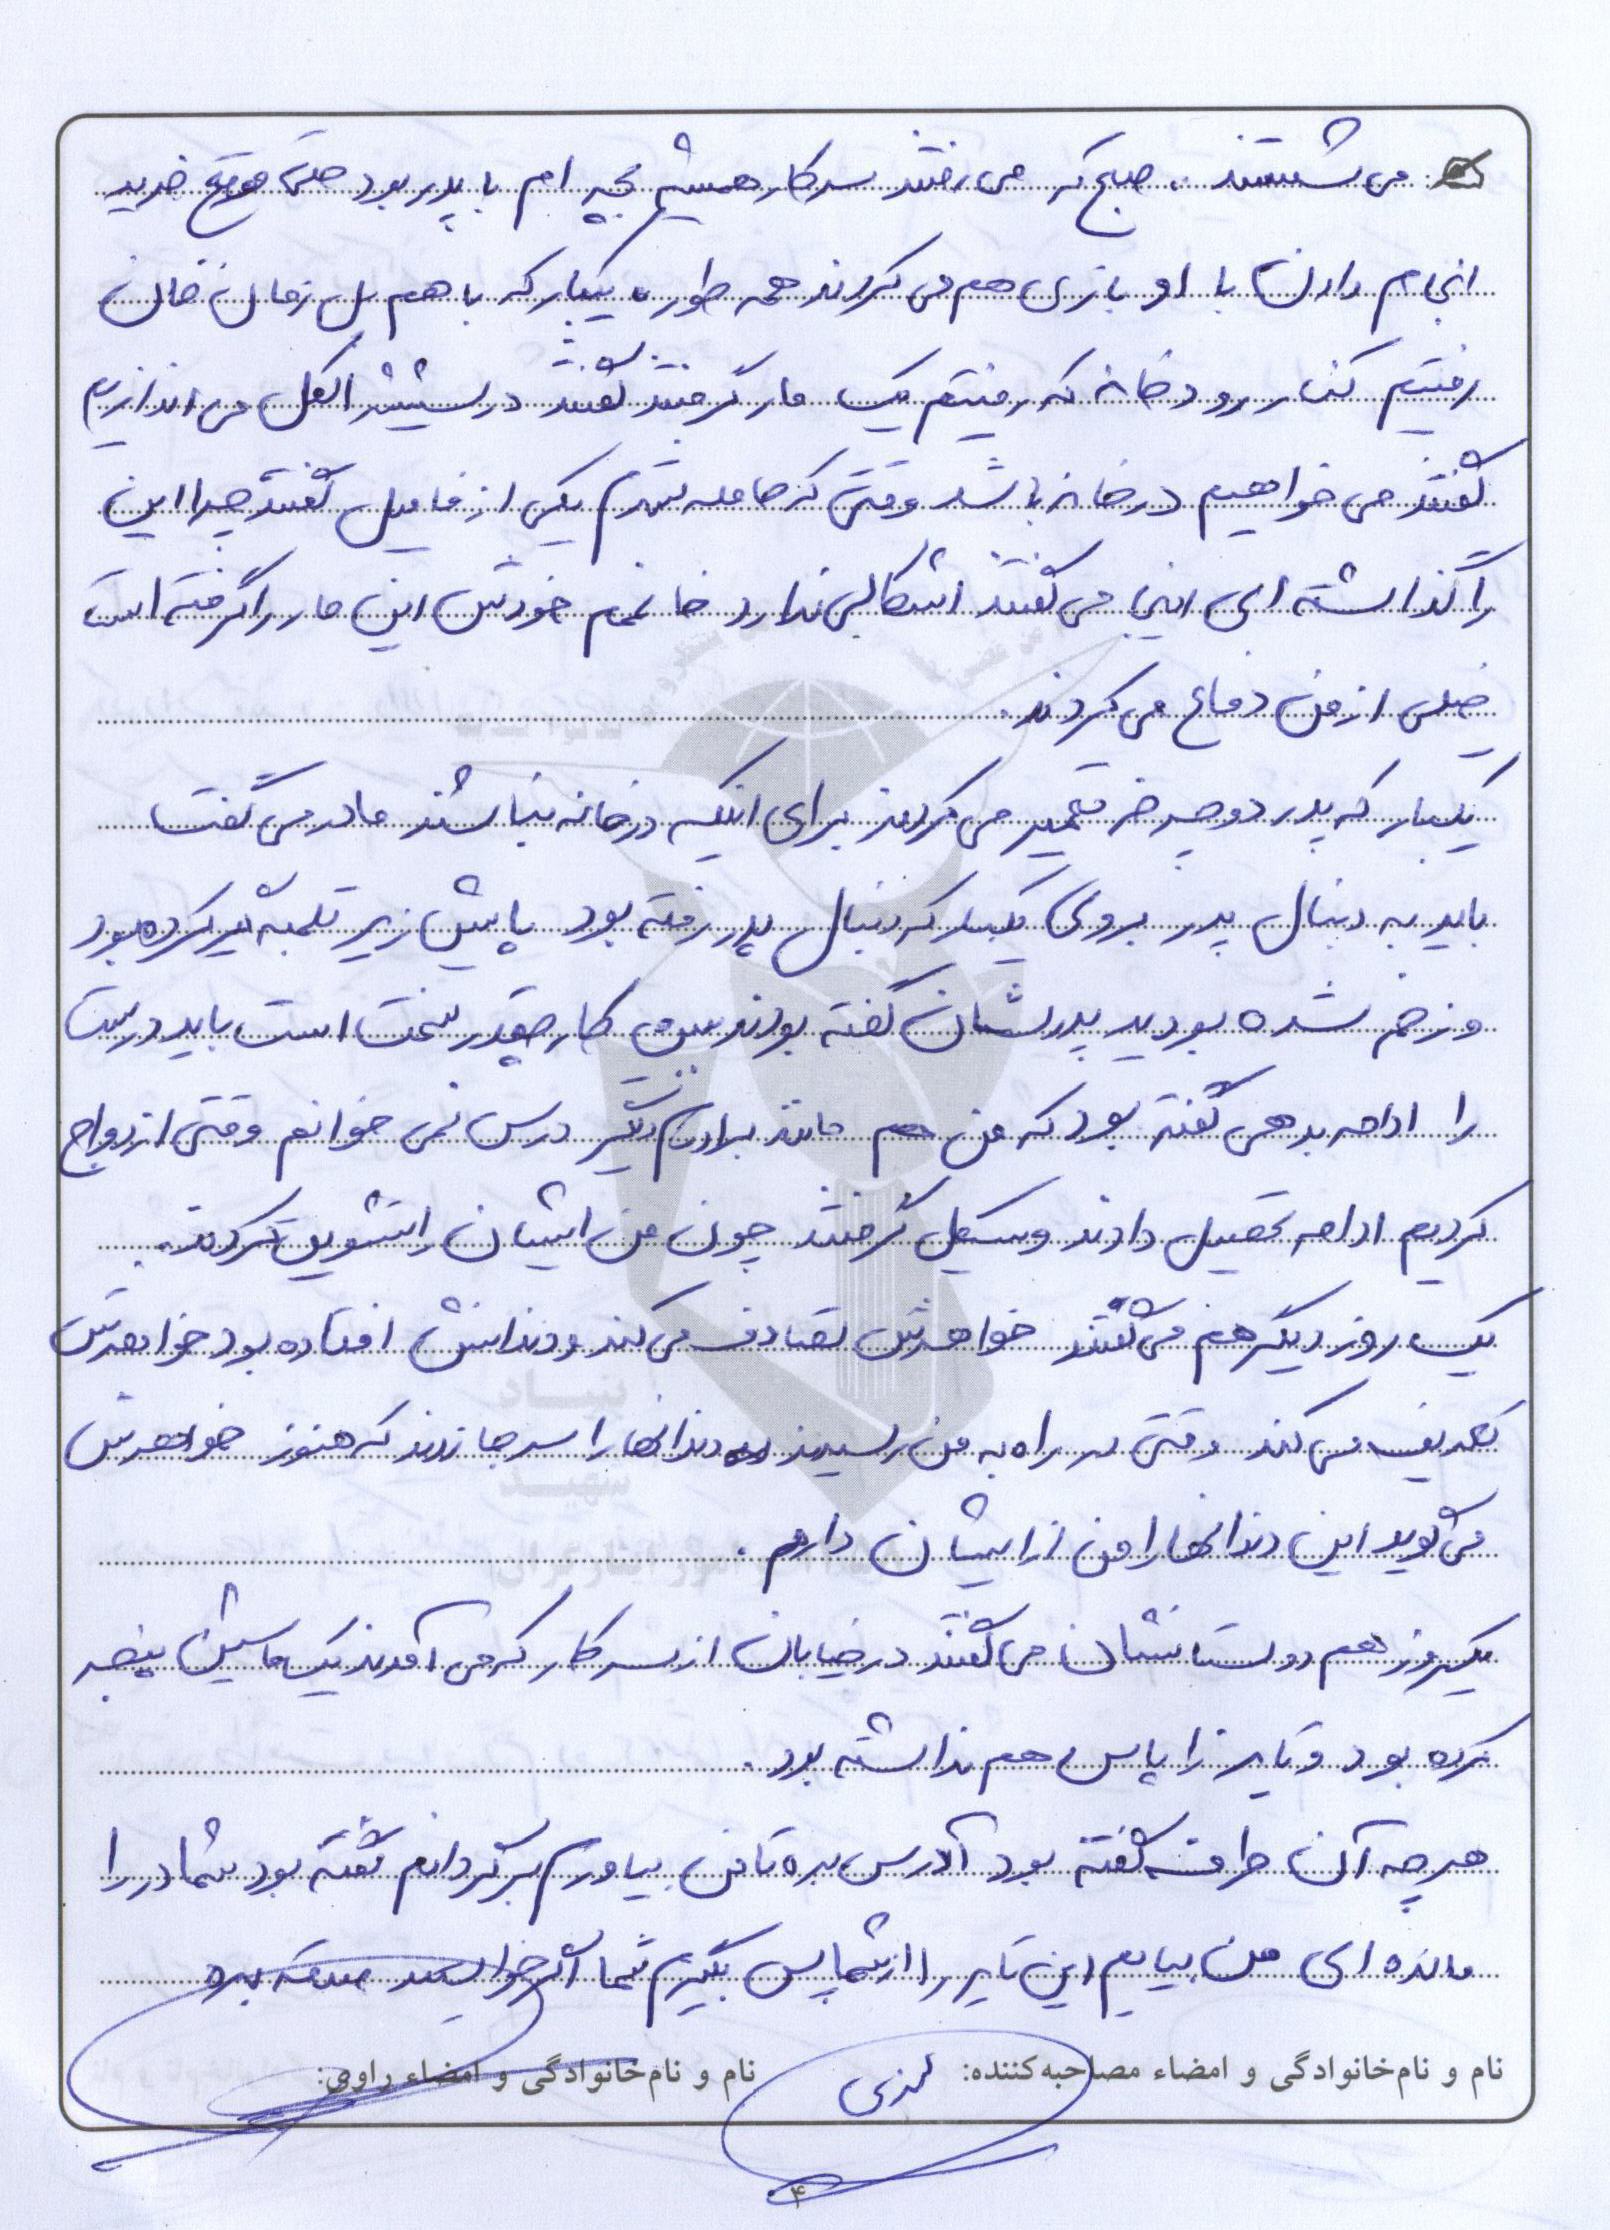 می شستند. صبح که می رفتند سرکار همیشه بچه ام با پدر بود حتی موقع خرید
انجام دادن با او بازی هم می کردند همه طوره یکبار که با هم پل زمان خان
رفتیم کنار رودخانه که رفتیم یک مار گرفتند گفتند در شیشه الکل می اندازیم
گفتند می خواهیم در خانه باشد وقتی که حامله شدم یکی از فامیل گفتند چرا این
را گذاشته ای اینجا می گفتند اشکالی ندارد خانمم خودش این مار را گرفته است
خیلی از من دفاع می کردند.
یکبار که پدر دوچرخه تعمیر می کردند برای اینکه در خانه نباشند مادر می گفت
باید به دنبال پدر بروی یکبار که دنبال پدر رفته بود پایش زیر تلمبه گیر کرده بود
و زخم شده بود پدرشان گفته بودند ببین کار چقدر سخت است باید درست
را ادامه بدهی گفته بود که من هم مانند برادرم دیگر درس نمی خوانم وقتی ازدواج
کردیم ادامه تحصیل دادند و سیکل گرفتند چون من ایشان را تشویق کردند.
یک روز دیگر هم می گفتند خواهرش تصادف می کند و دندانش افتاده بود خواهرش
تعریف می کند وقتی در راه به من رسیدند دندانها را سر جا زدند که هنوز خواهرش
می گوید این دندانها را من از ایشان دارم.
یکروز هم دوستانشان می گفتند در خیابان از سر کار که می آمدند یک ماشین پنچر
کرده بود و تایر زاپاس هم نداشته بود.
هر چه آن طرف گفته بود آدرس بده تا من بیاورم برگردانم گفته بود شما در راه
مانده ای من بیایم این تایر را از شما پس بگیرم شما اگر خواستید صدقه بده
نام و نام خانوادگی و امضاء مصاحبه کننده: نام و نام خانوادگی و امضاء راوی:
۴